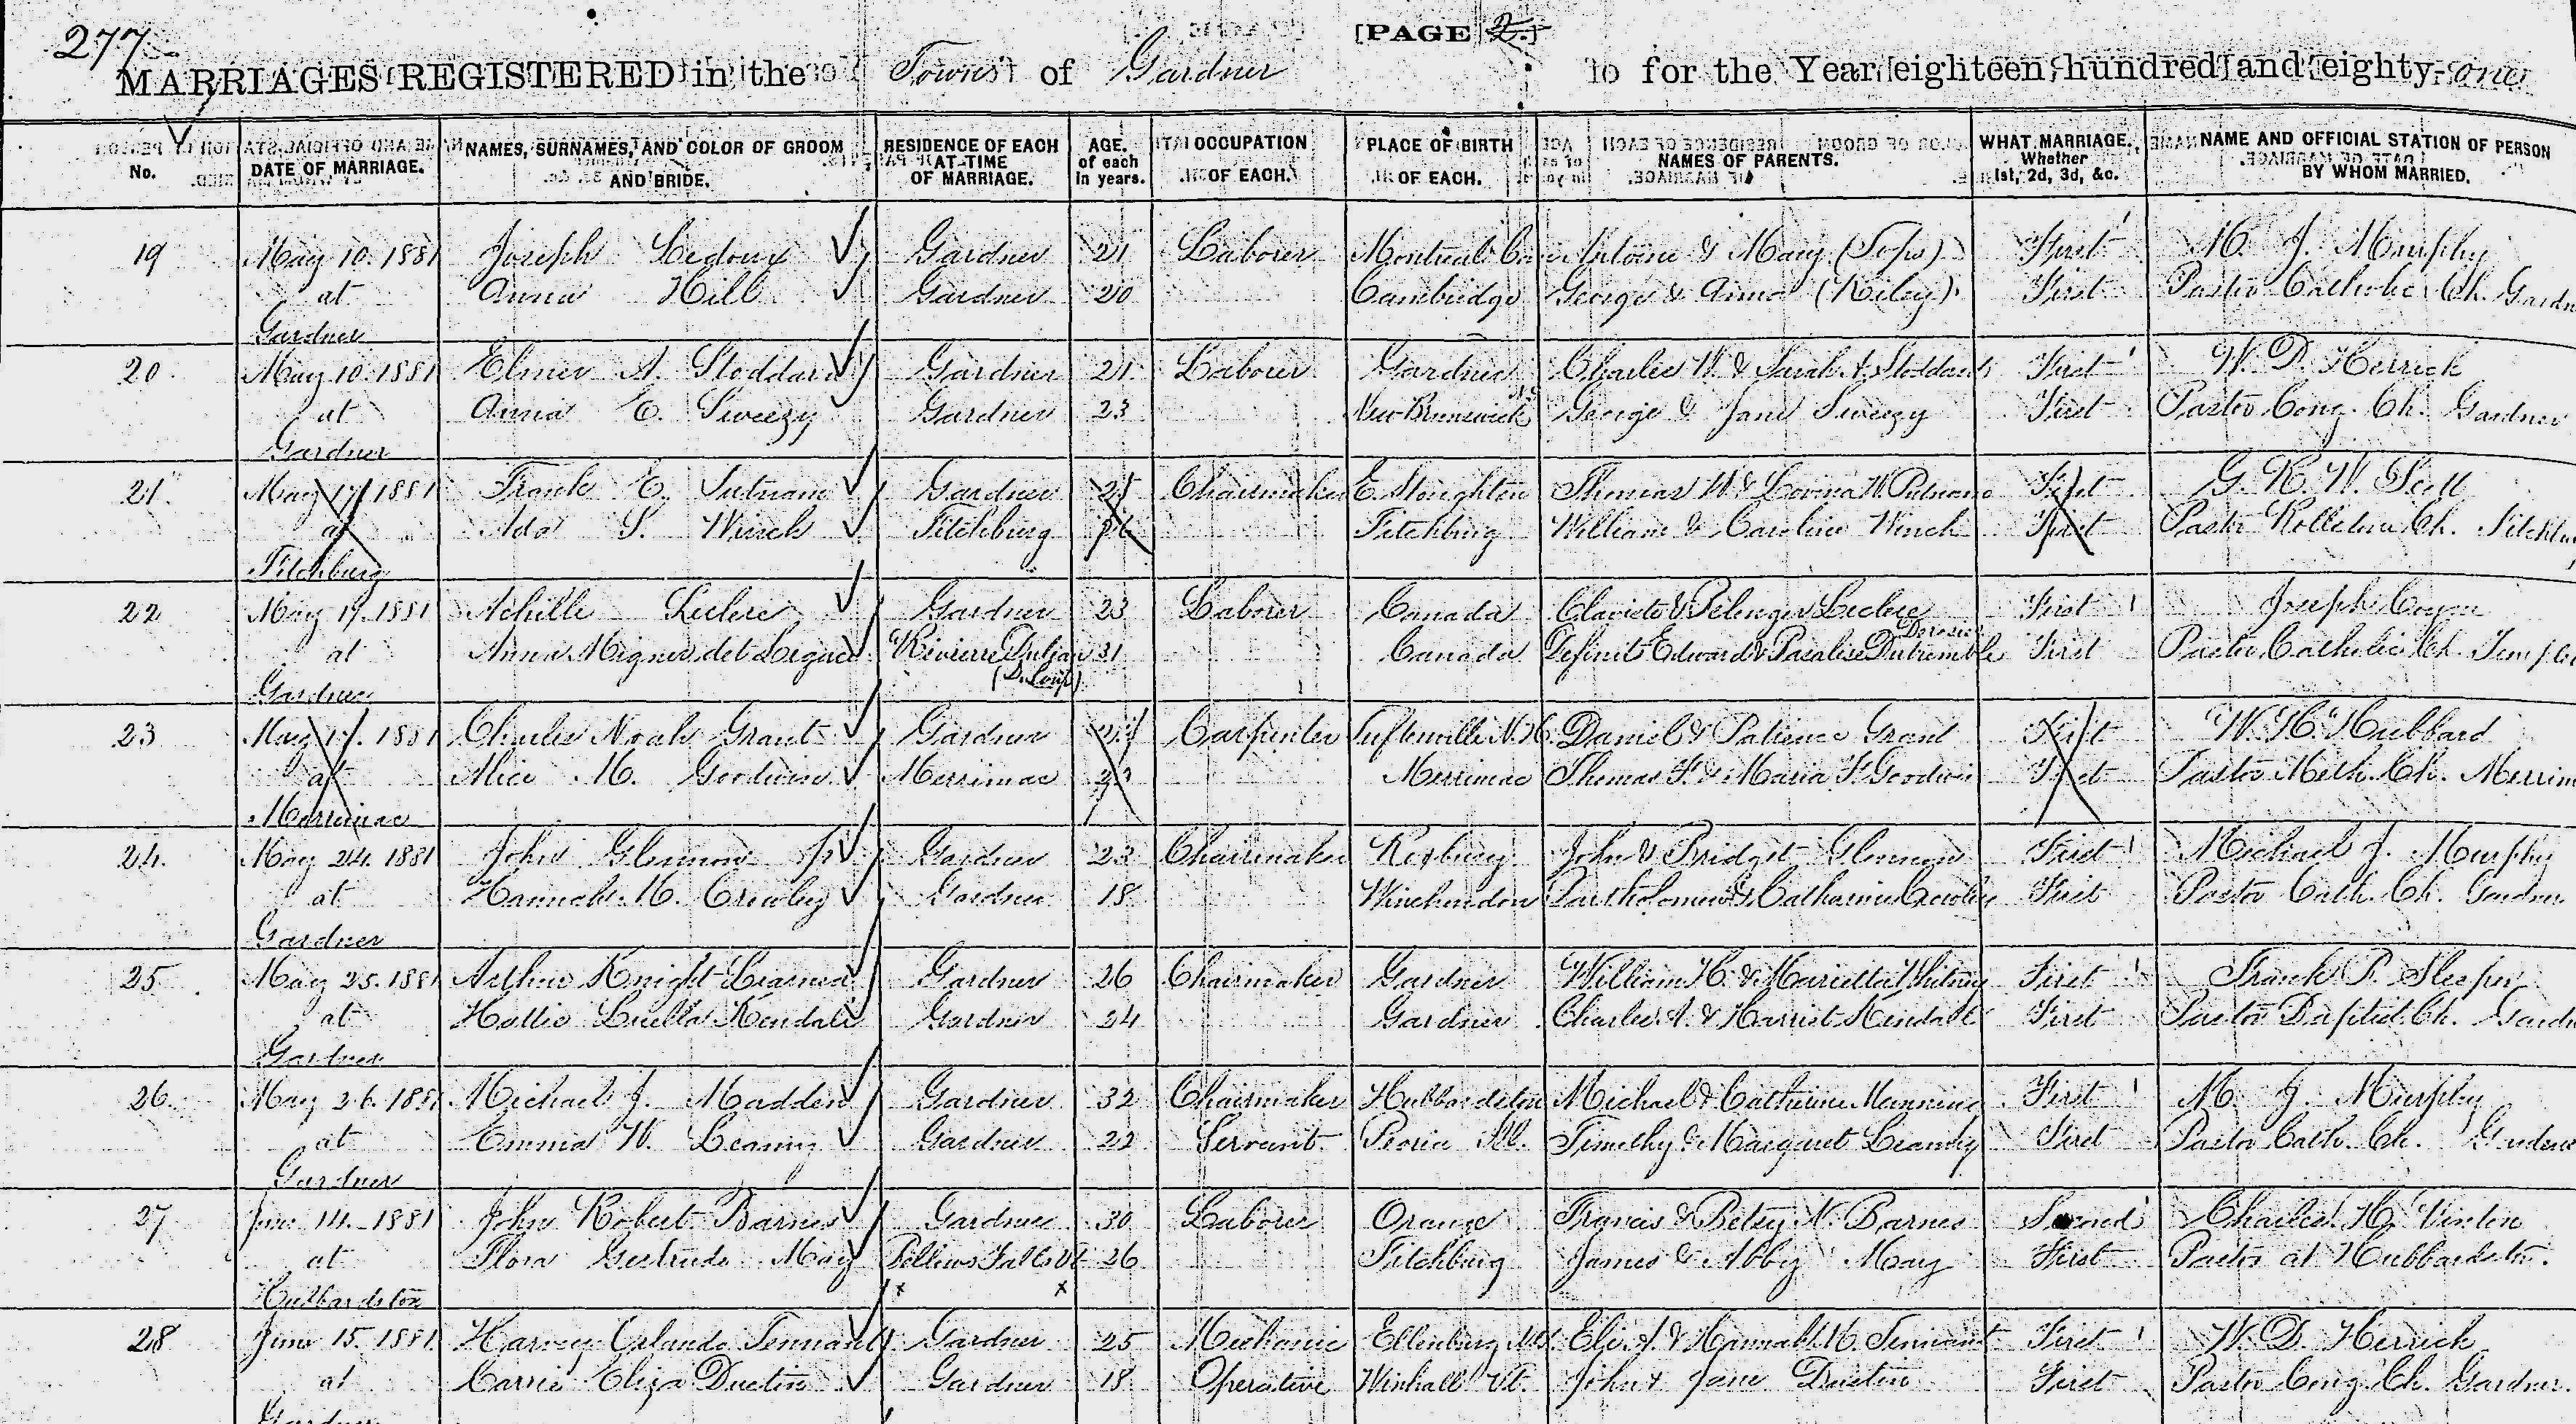 277
[PAGE 2.]
MARRIAGES REGISTERED in the Town of Gardner for the Year eighteen hundred and eighty-one
No. DATE OF MARRIAGE. NAMES, SURNAMES, AND COLOR OF GROOM AND BRIDE. RESIDENCE OF EACH AT TIME OF MARRIAGE. AGE. of each in years. OCCUPATION OF EACH. PLACE OF BIRTH OF EACH. NAMES OF PARENTS. WHAT MARRIAGE. Whether 1st, 2d, 3d, &c. NAME AND OFFICIAL STATION OF PERSON BY WHOM MARRIED.
19 May 10. 1881 Joseph Ledoux Gardner 21 Laborer Montreal Ca Antoine & Mary First M. J. Murphy
at Anna Hill Gardner 20 Cambridge George & Anna (Riley) First Pastor Catholic Ch. Gardn
Gardner
20 May 10. 1881 Elmer A. Stoddard Gardner 21 Laborer Gardner Charles W. & Sarah A. Stoddard First W. D. Herrick
at Anna E. Sweezy Gardner 23 New Brunswick George & Jane Sweezy First Pastor Cong. Ch. Gardner
Gardner
21. May 17. 1881 Frank E. Putnam Gardner Chairmaker E. Stoughton Thomas W. & Lovina W. Putnam First G. R. W. Scott
at Ada S. Winch Fitchburg Fitchburg William & Caroline Winch First Pastor Rollstone Ch. Fitchbu
Fitchburg
22 May 17. 1881 Achille Leclerc Gardner 23 Laborer Canada Leclerc First Joseph
at Anna Canada First Pastor Catholic Ch. Temple
(Du Loup)
Gardner
23 May 17. 1881 Charles Noah Grant Gardner Carpenter Daniel & Patience Grant First W. H. Hubbard
at Alice M. Goodwin Merrimac Merrimac Thomas F. & Maria F. Goodwin First Pastor Meth. Ch. Merrim
Merrimac
24. May 24. 1881 John Glennon Jr Gardner 23 Chairmaker Roxbury John & Bridget Glennon First Michael J. Murphy
at Hannah M. Crowley Gardner 18 Winchendon Bartholomew & Catharine Crowley First Pastor Cath. Ch. Gardner
Gardner
25 May 25. 1881 Arthur Knight Learned Gardner 26 Chairmaker Gardner William H. & Marietta Whitney First Frank P. Sleeper
at Hattie Luella Kendall Gardner 24 Gardner Charles A. & Harriet Kendall First Pastor Baptist Ch. Gardn
Gardner
26. May 26. 1881 Michael J. Madden Gardner 32 Chairmaker Hubbardston Michael & Catherine Manning First M. J. Murphy
at Emma W. Leamy Gardner 22 Servant. Peoria Ill. Timothy & Margaret First Pastor Cath. Ch. Gardner
Gardner
27 June 14. 1881 John Robert Barnes Gardner 30 Laborer Orange Francis & Betsy N. Barnes Second Charles H. Vinton
at Flora Gertrude May Bellows Falls Vt 26 Fitchburg James & Abby May First Pastor at Hubbardston.
Hubbardston
28 June 15. 1881 Harvey Orlando Tennant Gardner 25 Mechanic Ellenburg N.Y. Eli A. & Hannah M. Tennant First W. D. Herrick
at Carrie Eliza Dustin Gardner 18 Operative Winhall Vt. John & Jane Dustin First Pastor Cong. Ch. Gardner.
Gardner